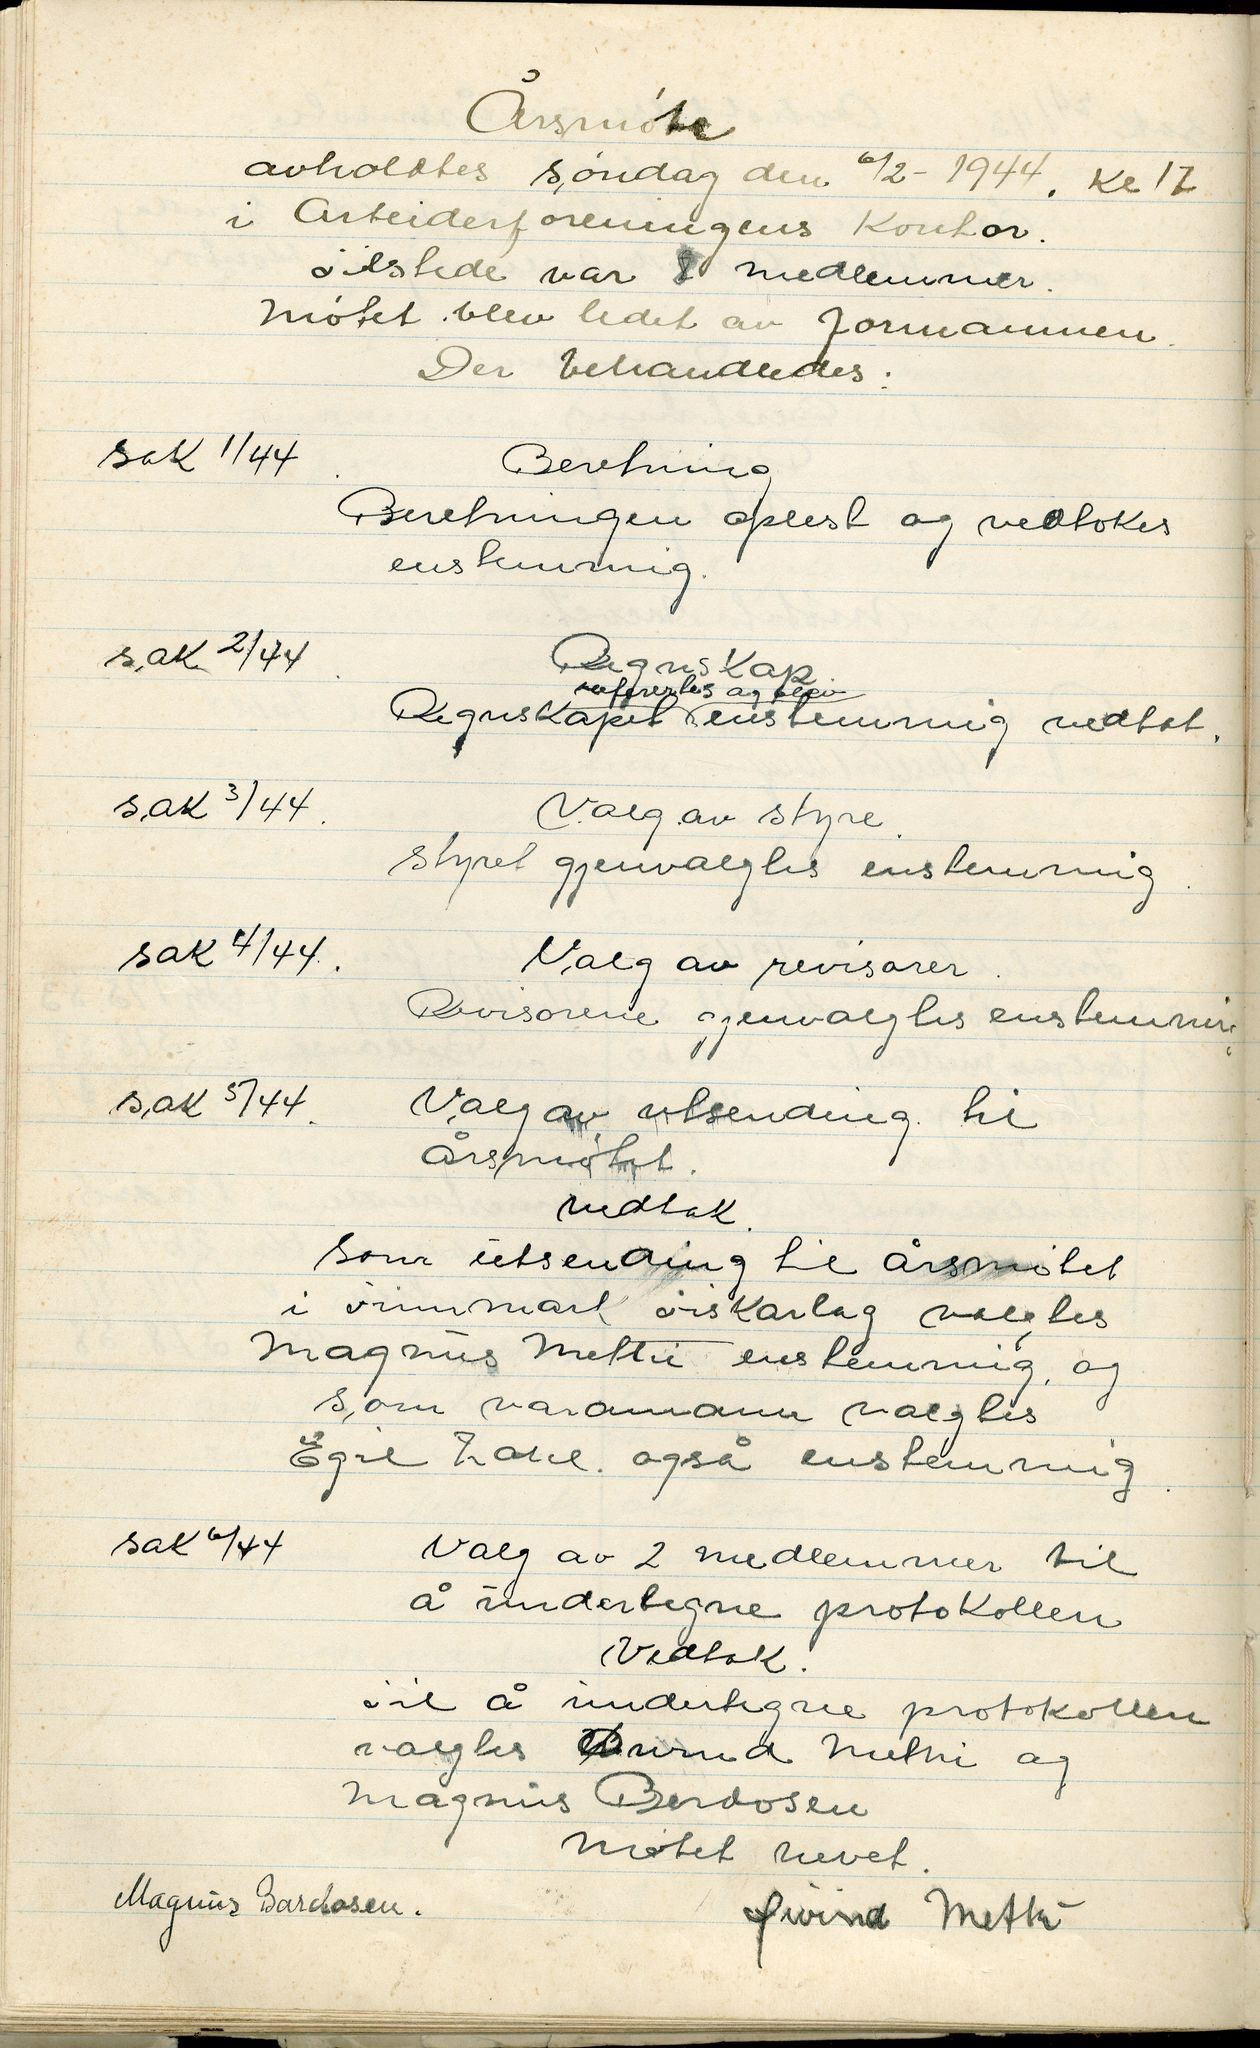 Årsmöte
avholdtes söndag den 6/2- 1944. Kl 17
i Arbeiderforeningens Kontor.
Tilstede var 8 medlemmer.
Mötet blev ledet av formannen.
Der behandledes:
sak 1/44. Beretning
Beretningen oplest og vedtokes
enstemmig.
sak 2/44. Regnskap
referertes og blev
Regnskapet enstemmig vedtat.
sak 3/44. Valg av styre.
Styret gjenvalgtes enstemmig.
sak 4/44. Valg av revisorer.
Revisorene gjenvalgtes enstemmig
sak 5/44. Valg av utsending til
årsmötet.
Vedtak.
Som utsending til årsmötet
i Finnmark Fiskarlag valgtes
Magnus Methi enstemmig, og
som varamann valgtes
Egil også enstemmig.
sak 6/44 Valg av 2 medlemmer til
å undertegne protokollen
Vedtak.
Til å undertegne protokollen
valgtes Öivind Methi og
Magnus Bardosen
Mötet hevet.
Magnus Bardosen. Øivind Methi